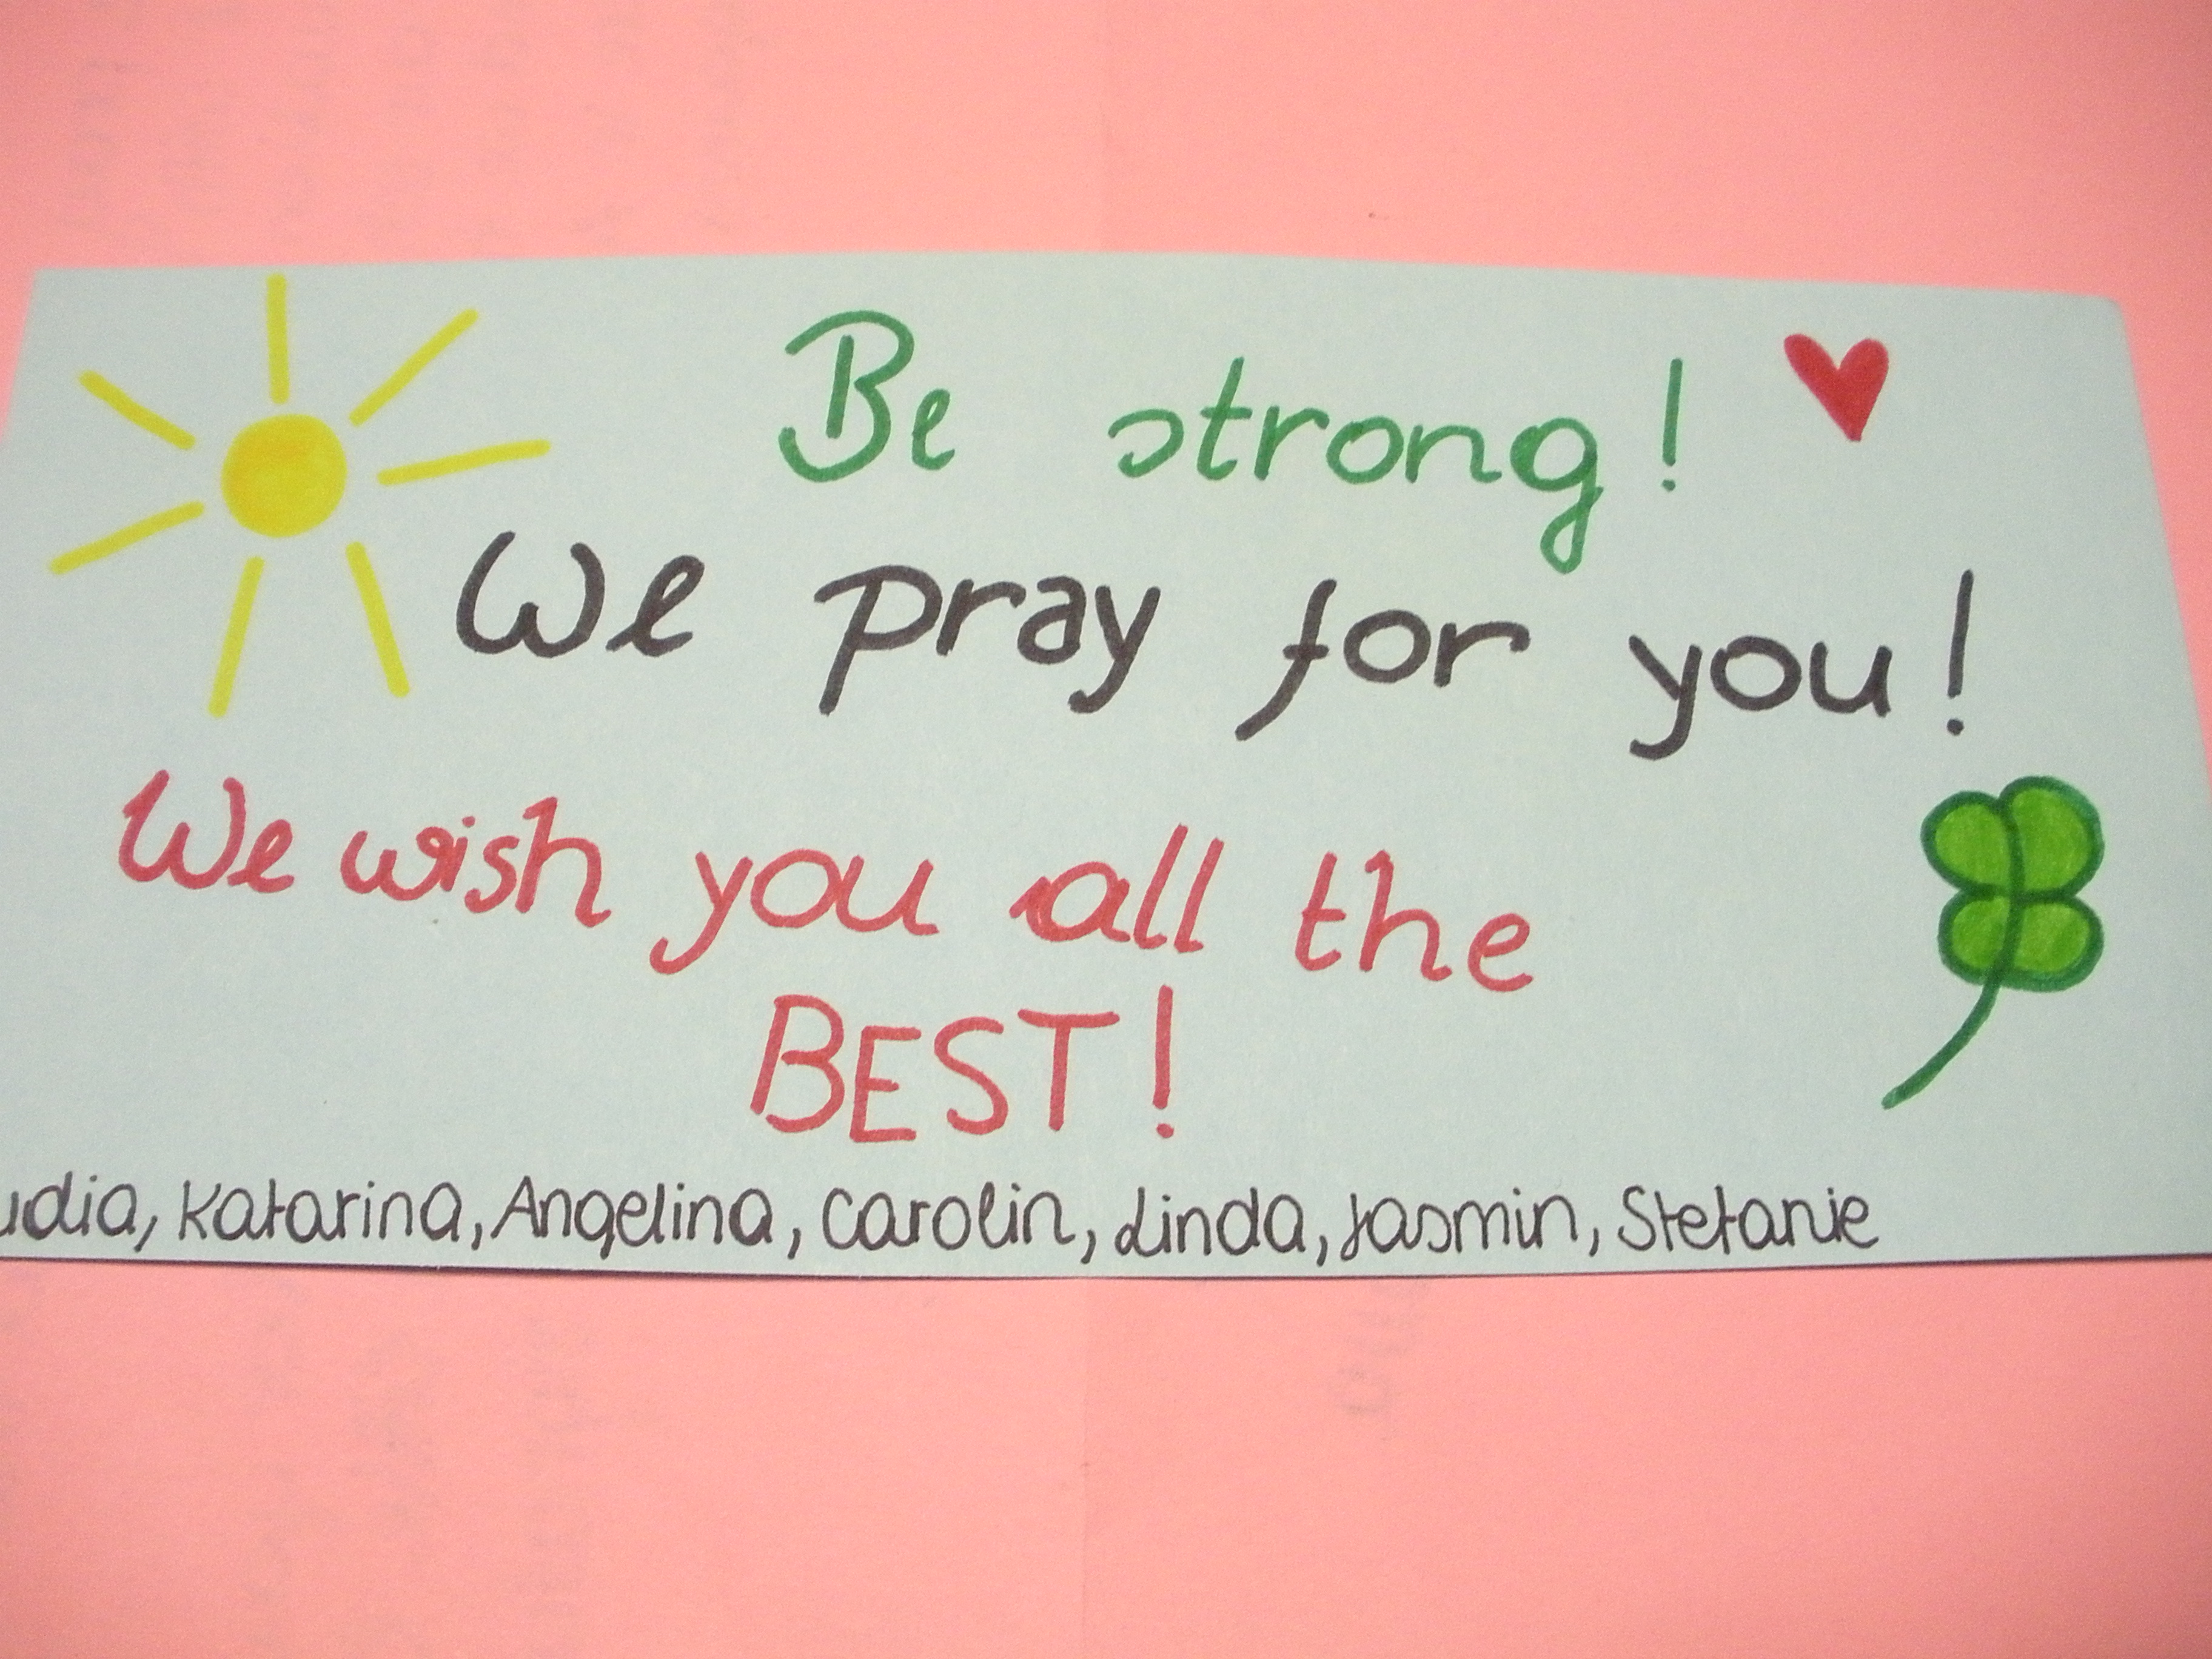 Be strong!
We pray for you!
We wish you all the
BEST!
udia, Katarina, Angelina, Carolin, Linda, Jasmin, Stefanie